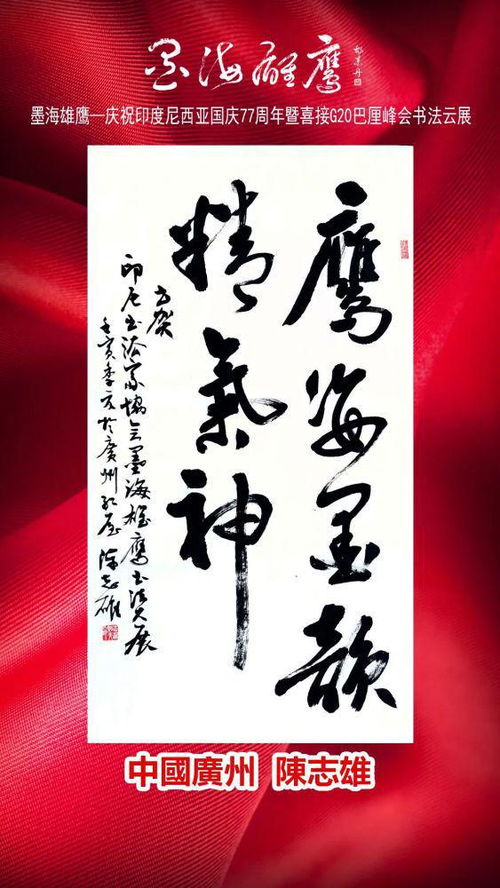 墨海雄鹰
墨海雄鹰—庆祝印度尼西亚国庆77周年暨喜接G20巴厘峰会书法云展
鷹姿墨韻
精氣神
书贺
印尼书法家協会墨海雄鹰书法大展
壬寅季夏於廣州 陈志雄
中國廣州 陳志雄